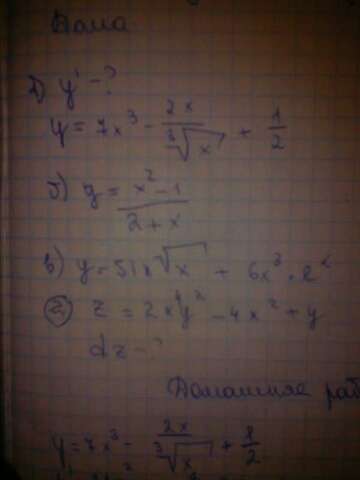 Дома
а) y' - ?
y = 7x³ - 2x/∛x + 1/2
б) y = (x² - 1)/(2 + x)
в) y = 51x√x + 6x³ · 2ˣ
② z = 2x⁴y² - 4x² + y
dz - ?
Домашняя раб
y = 7x³ - 2x/∛x + 1/2